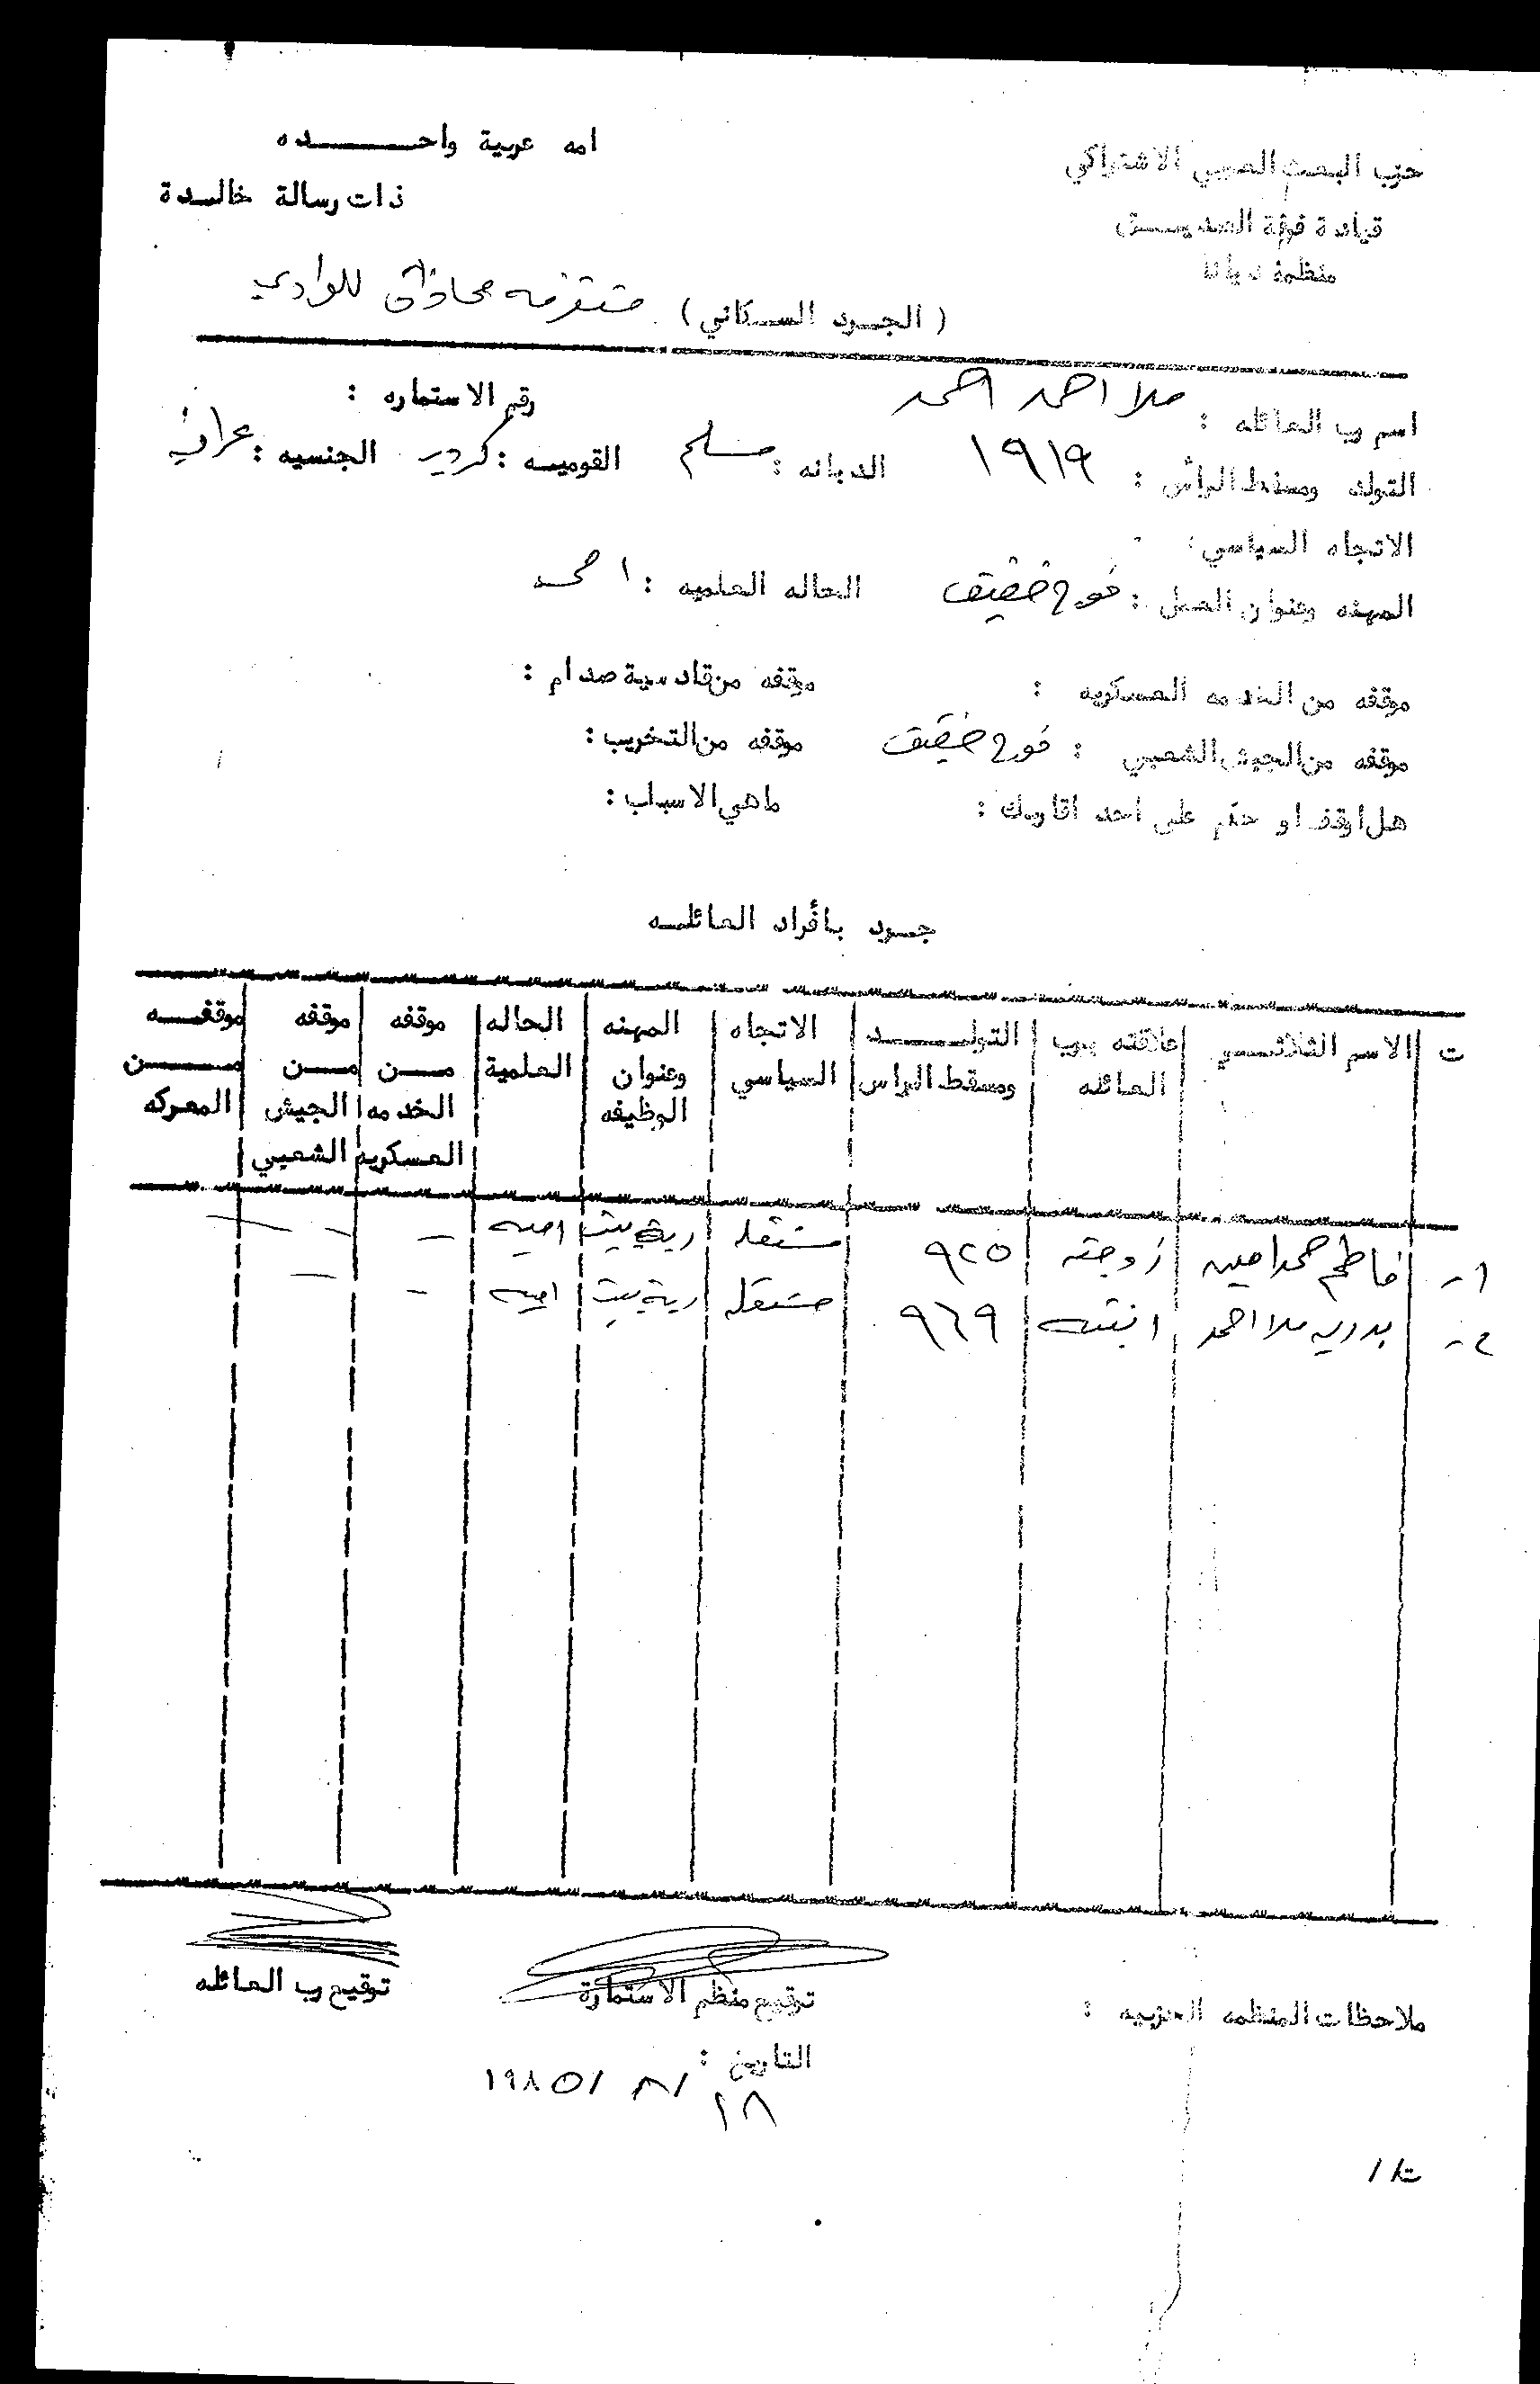 حزب البعث العربي الاشتراكي
امه عربية واحـــــده
قيادة فرقة الصديـــق
ذات رسالة خالـدة
منظمة ديانا
(الجـرد السـكاني)
رقم الاستماره :
اسم رب العائله : ملا احمد احمد
التولد ومسقط الرأس : ١٩١٩ الديانه : مسلم القوميـه : كردي الجنسيه : عراقي
الاتجاه السياسي :
المهنه وعنوان العمل : الحاله العلميه :
موقفه من الخدمه العسكريه : موقفه من قادسية صدام :
موقفه من الجيش الشعبي : موقفه من التخريب :
هل اوقف او حكم على احد اقاربك : ماهي الاسباب :
جـرد بأفراد العائلـه
ت | الاسم الثلاثـي | علاقته برب العائله | التولـــد ومسقط الراس | الاتجاه السياسي | المهنه وعنوان الوظيفه | الحاله العلمية | موقفه مــن الخدمه العسكريه | موقفه مــن الجيش الشعبي | موقفـه مـــن المعركه
١- فاطمه امين | زوجته | ٩٢٥ | مستقله | ربة بيت | اميه | - | - | -
٢- بدريه ملا احمد | ابنته | ٩٦٩ | مستقله | ربة بيت | اميه | - | -
ملاحظات المنظمه الحزبيه :
توقيع منظم الاستمارة
توقيع رب العائله
التاريخ : ١٨ / ٨ / ١٩٨٥